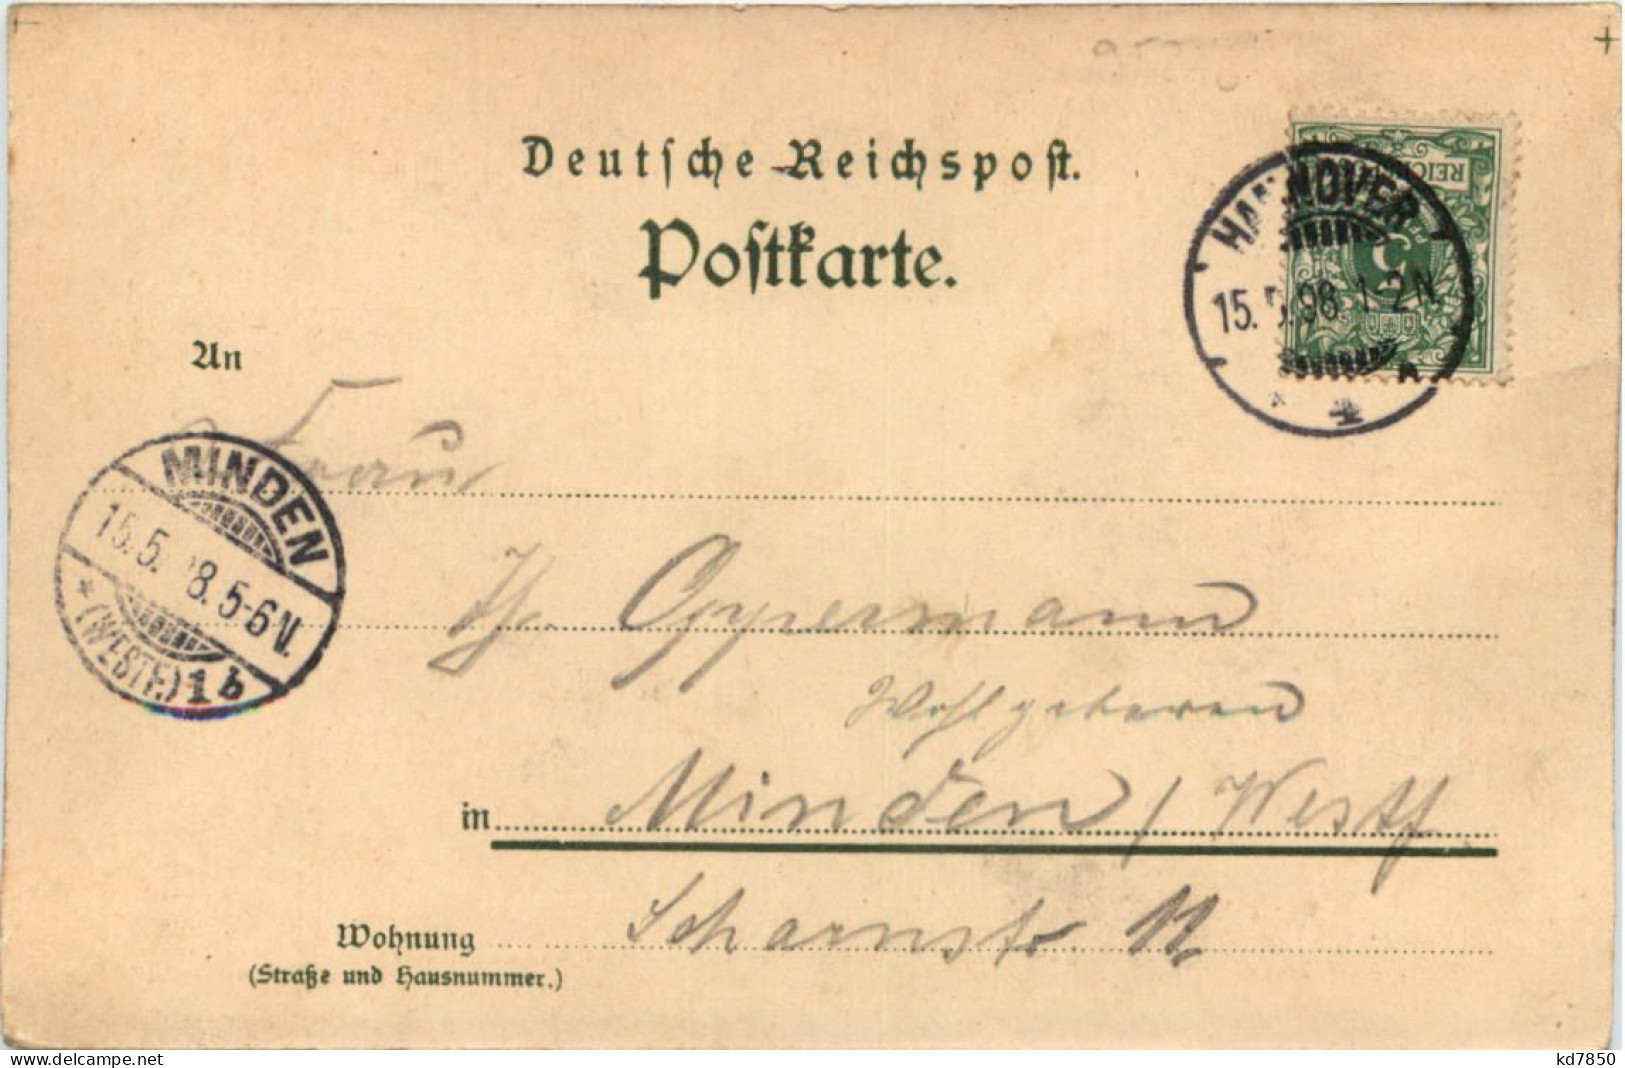 Deutsche Reichspost.
Postkarte.
REICHS
5
HANNOVER
15.5.98. 1-2N.
An
Frau
MINDEN
15.5. 98. 5-6N.
* (WESTF.) 1b
Th. Oppermann
Wohlgeboren
in Minden / Westf.
Wohnung Scharnstr. 12
(Straße und Hausnummer.)
www.delcampe.net
kd7850